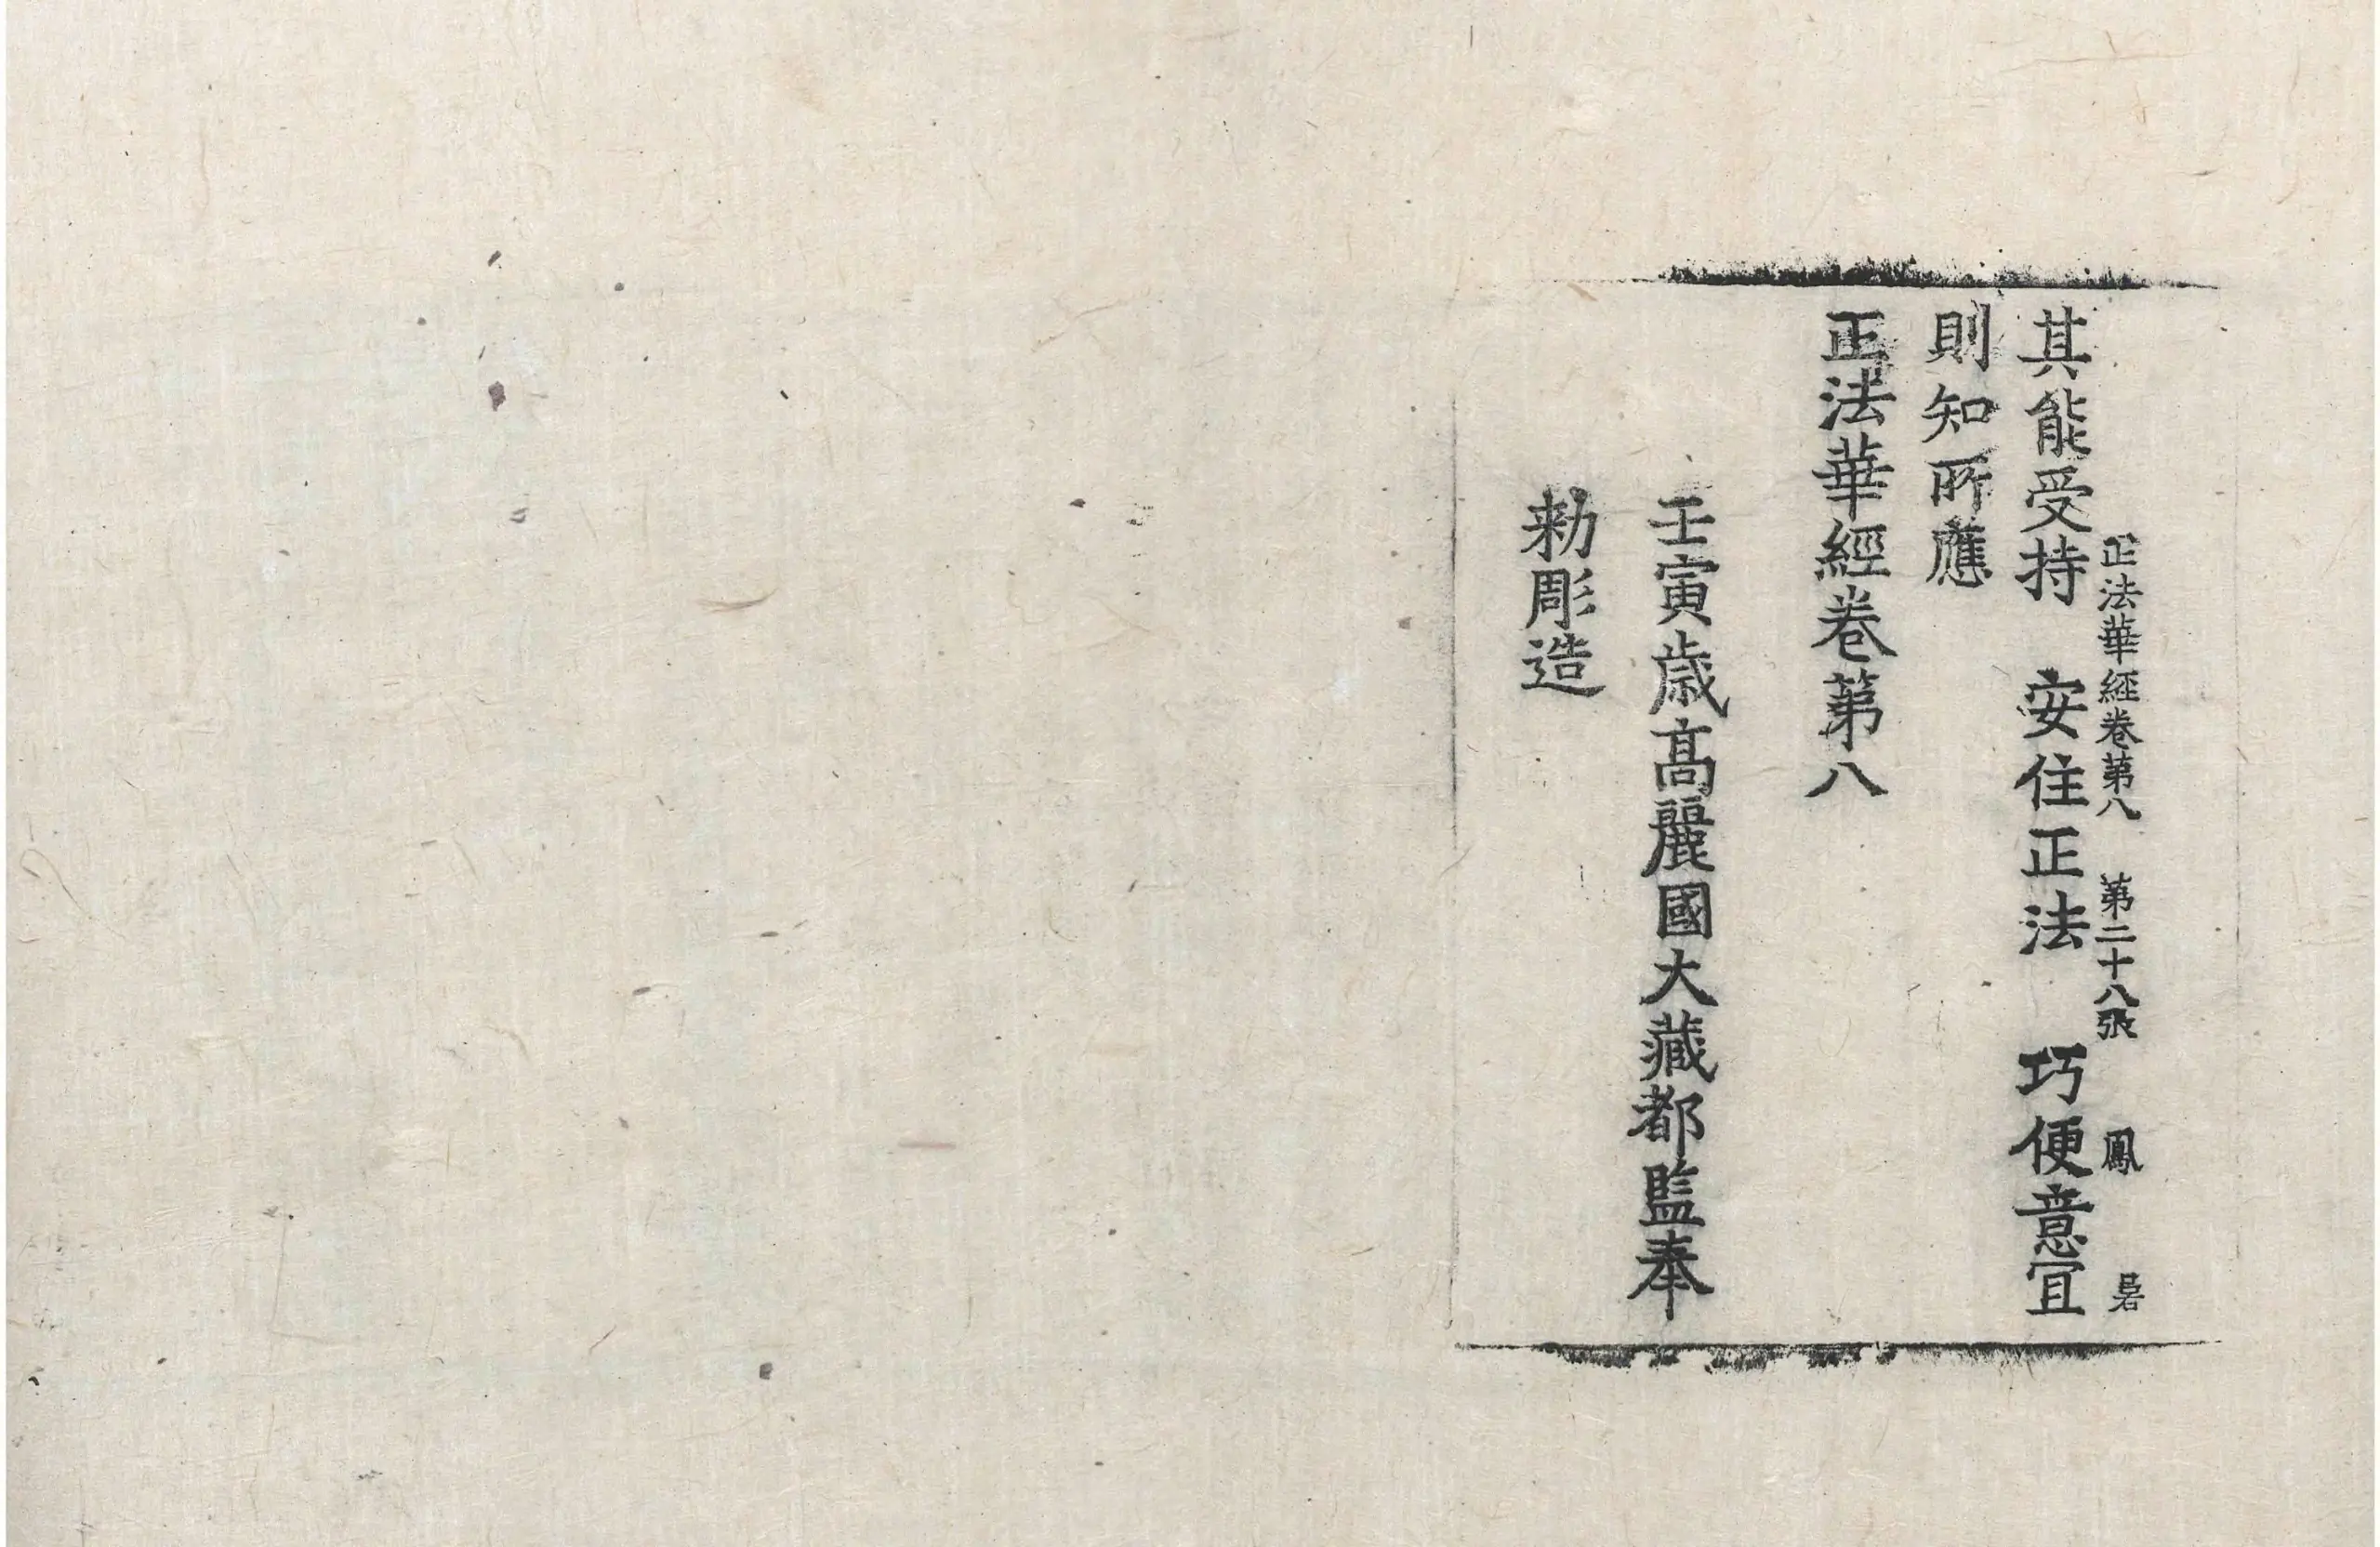 正法華經卷第八 第二十八張 鳳
其能受持 安住正法 巧便意冝
則知所應
正法華經卷第八
壬寅歲高麗國大藏都監奉
勑彫造